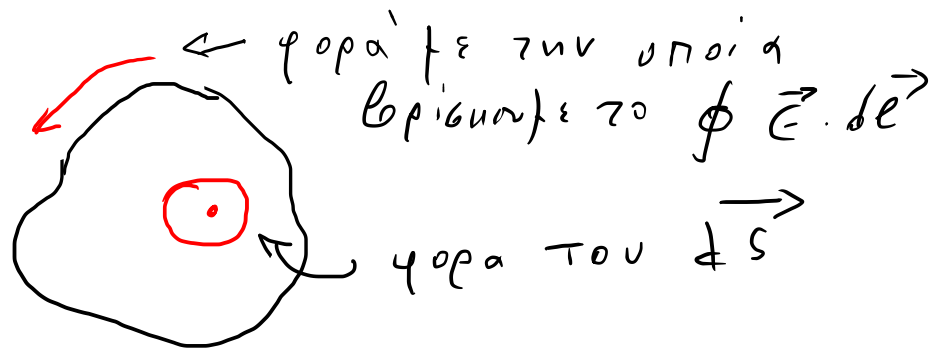 ← φορά με την οποία
βρίσκουμε το ∮ E⃗ . dℓ⃗
φορα του dS⃗